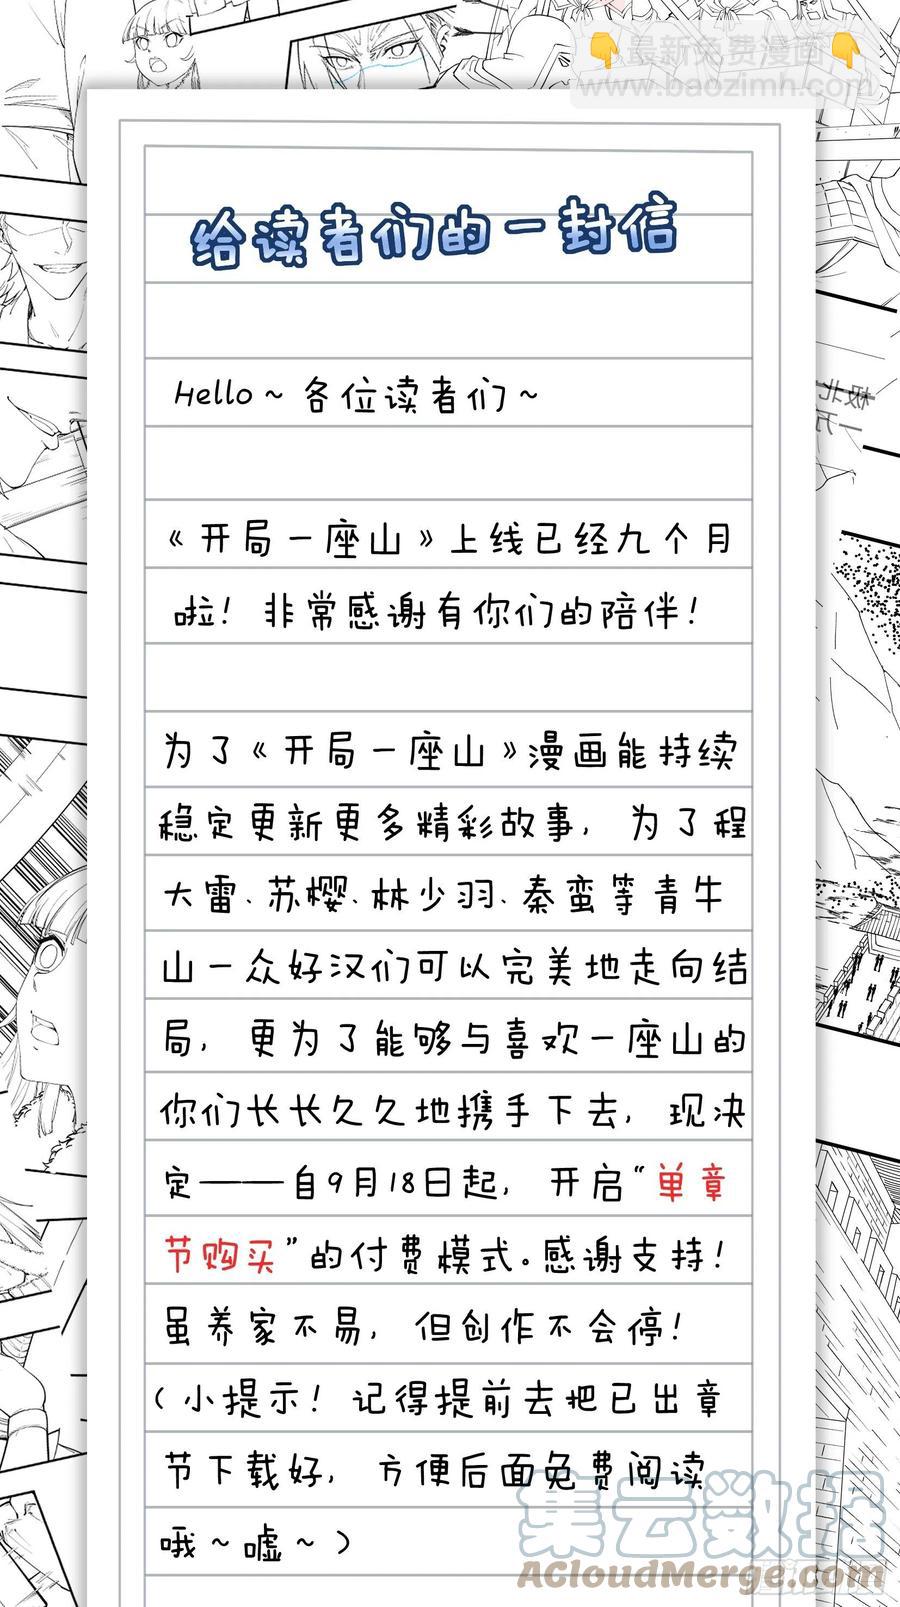 👇最新免费漫画👇
www.baozimh.com
给读者们的一封信
Hello~各位读者们~
《开局一座山》上线已经九个月
啦！非常感谢有你们的陪伴！
为了《开局一座山》漫画能持续
稳定更新更多精彩故事，为了程
大雷、苏樱、林少羽、秦蛮等青牛
山一众好汉们可以完美地走向结
局，更为了能够与喜欢一座山的
你们长长久久地携手下去，现决
定——自9月18日起，开启“单章
节购买”的付费模式。感谢支持！
虽养家不易，但创作不会停！
（小提示！记得提前去把已出章
节下载好，方便后面免费阅读
哦~嘘~）
集云数据
ACloudMerge.com